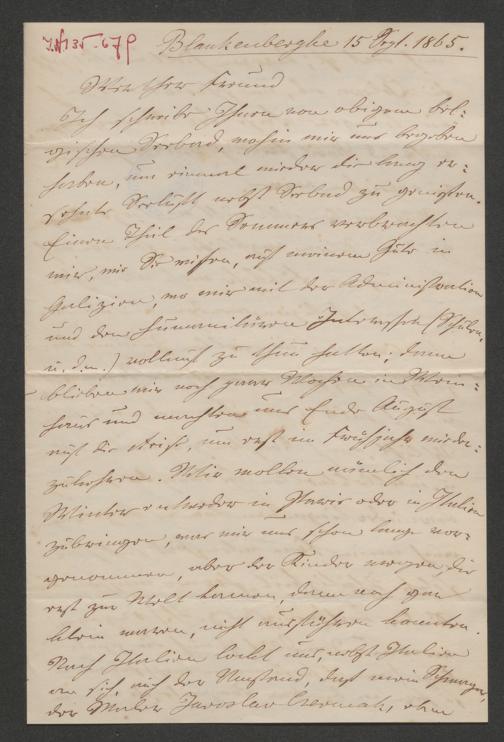 I.N. 135.679
Blankenberghe 15 Sept. 1865.
Werther Freund
Ich schreibe Ihnen von obigem bel-
gischen Seebad, wohin wir uns begeben
haben, um einmal wieder die lang er-
sehnte Seeluft nebst Seebad zu genießen.
Einen Theil des Sommers verbrachten
wir, wie Sie wissen, auf meinem Gute in
Galizien, wo wir mit der Administration
und den humanitären Interessen (Schulen,
u. d. m.) vollauf zu thun hatten; dann
blieben wir noch paar Wochen in Wein-
haus und machten uns Ende August
auf die Reise, um erst im Frühjahr wieder-
zukehren. Wir wollen nämlich den
Winter entweder in Paris oder in Italien
zubringen, was wir uns schon lange vor-
genommen, aber der Kinder wegen, die
erst zur Welt kamen, dann noch gar
klein waren, nicht ausführen konnten.
Nach Italien lockt uns, nebst Italien
an sich, auch der Umstand, daß mein Schwager,
der Maler Jaroslav Czermak, eben